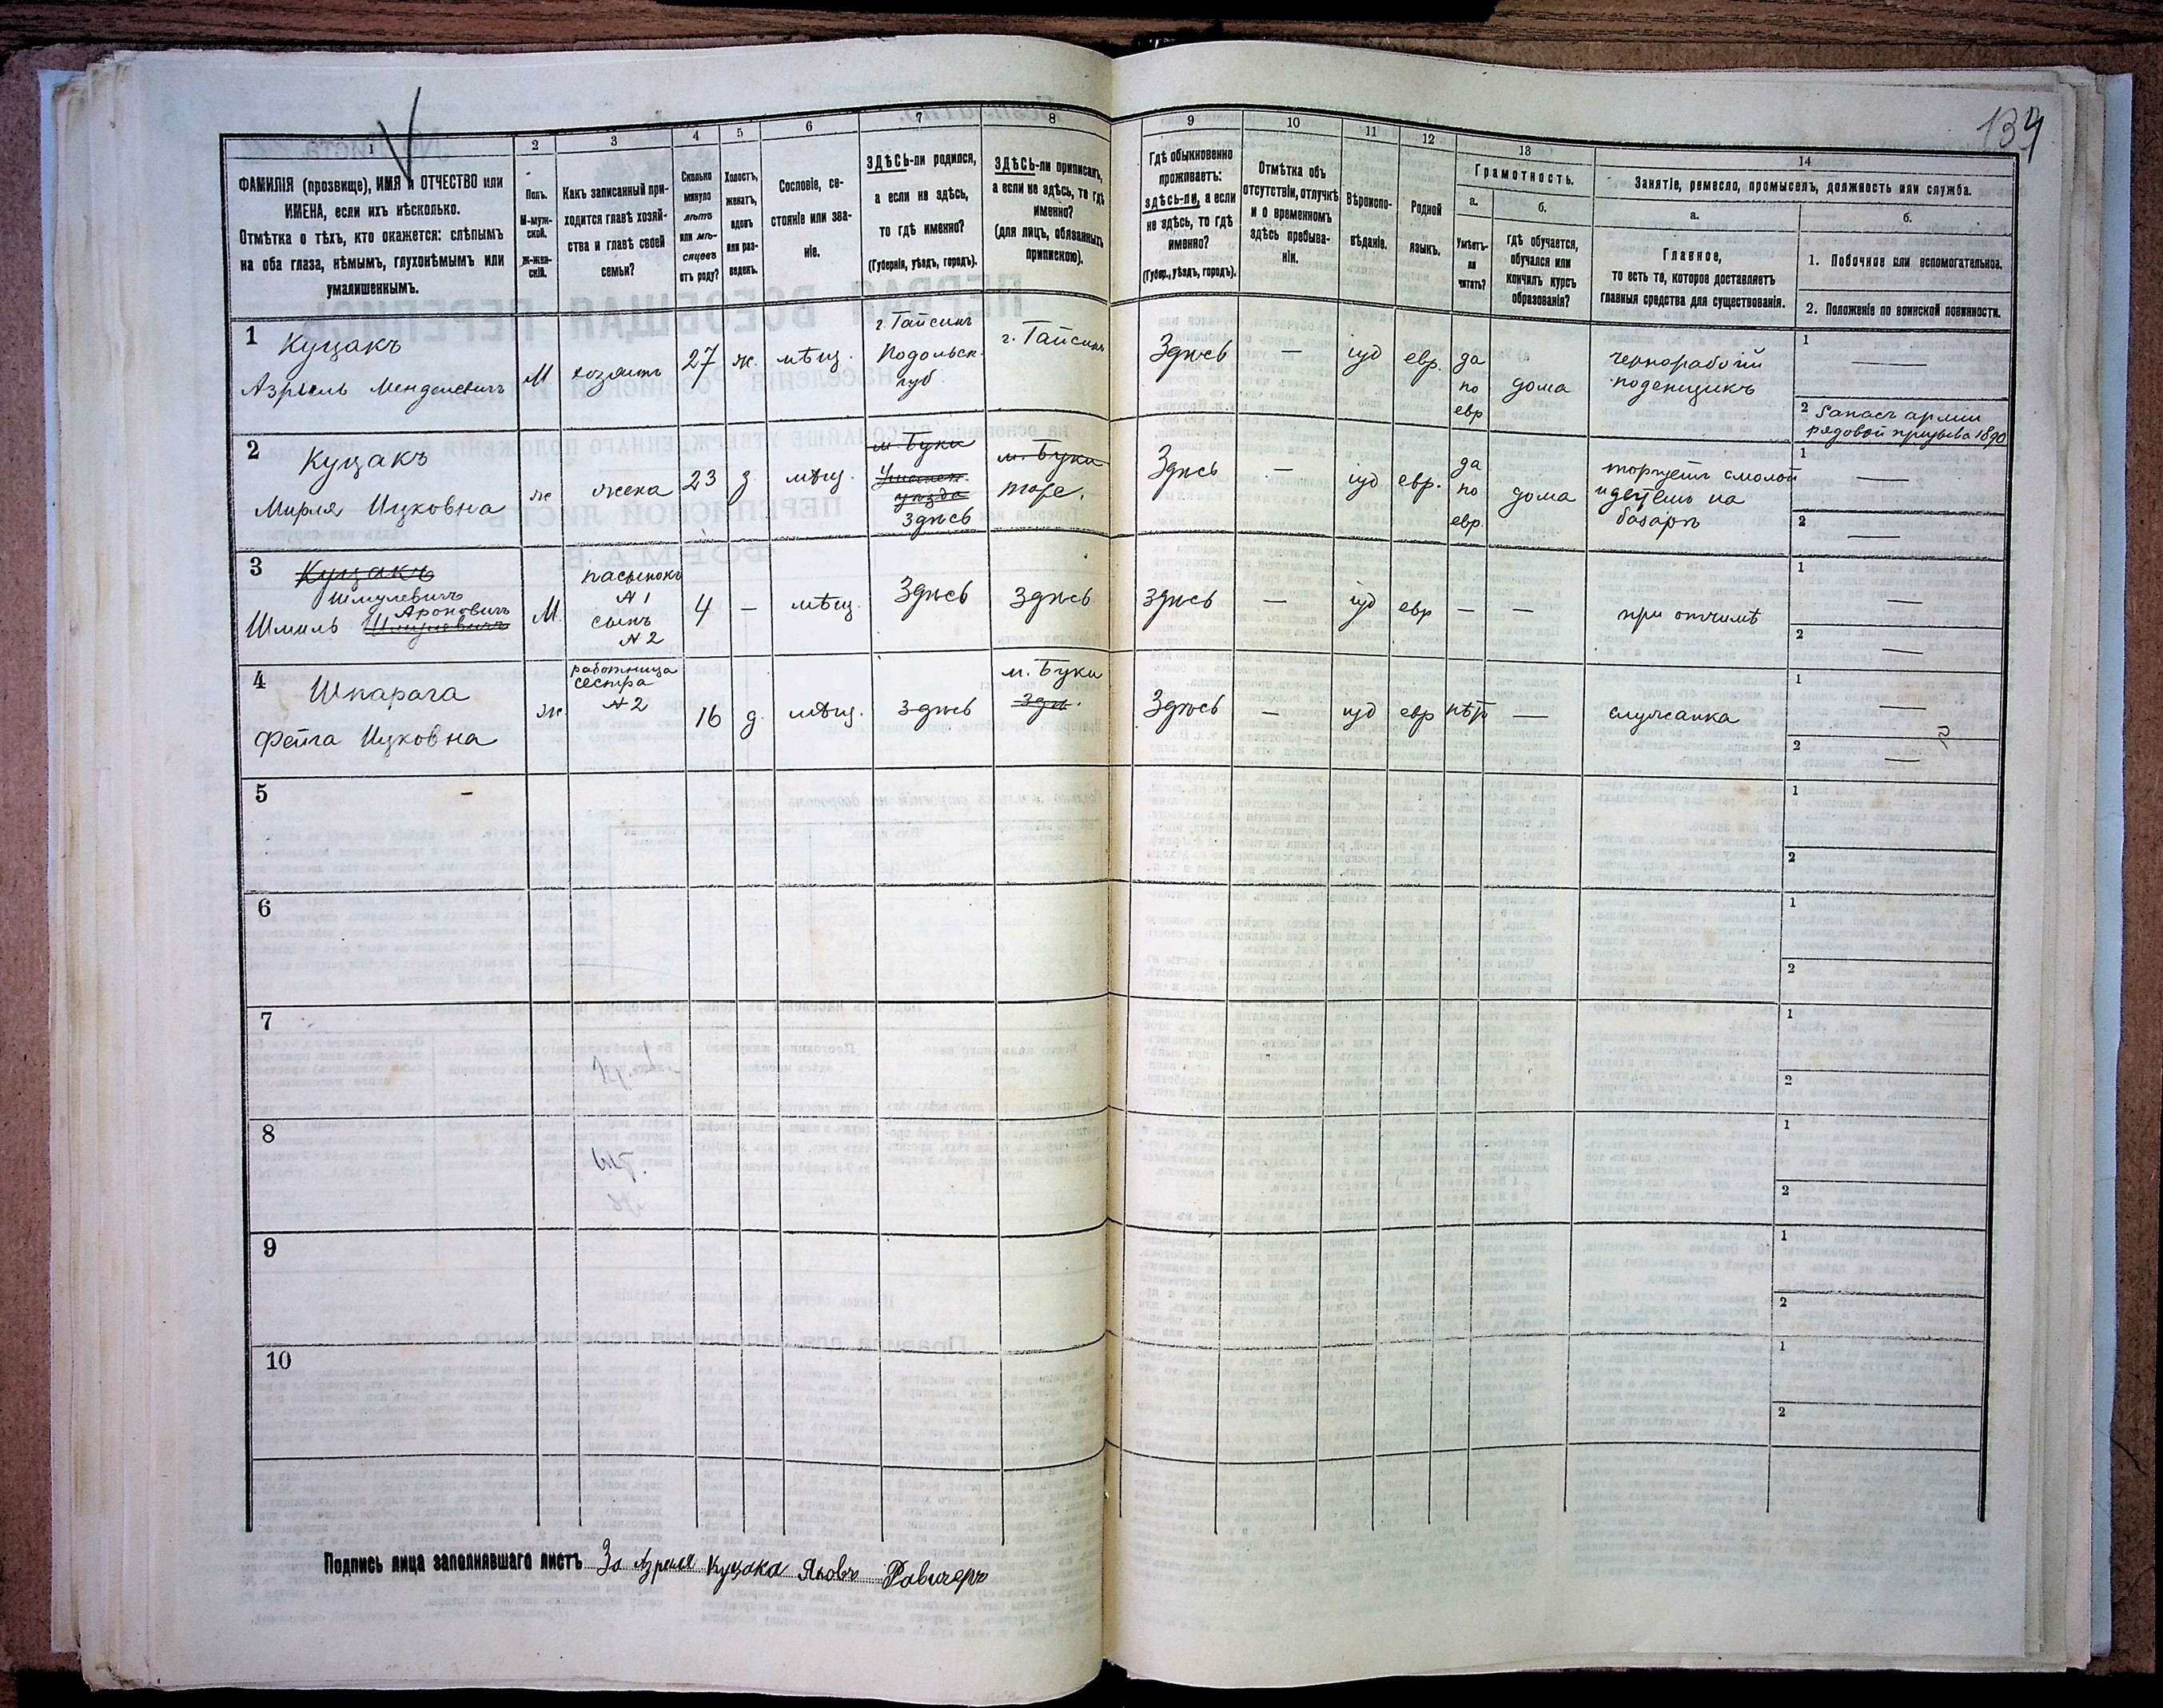 134
1
2
3
4
5
6
7
8
9
10
11
12
13
14
ФАМИЛІЯ (прозвище), ИМЯ и ОТЧЕСТВО или
ИМЕНА, если ихъ нѣсколько.
Отмѣтка о тѣхъ, кто окажется: слѣпымъ
на оба глаза, нѣмымъ, глухонѣмымъ или
умалишеннымъ.
Полъ.
М-муж-
ской.
Ж-жен-
скій.
Какъ записанный при-
ходится главѣ хозяй-
ства и главѣ своей
семьи?
Сколько
минуло
лѣтъ
или мѣ-
сяцевъ
отъ роду?
Холостъ,
женатъ,
вдовъ
или раз-
веденъ.
Сословіе, со-
стояніе или зва-
ніе.
ЗДѢСЬ-ли родился,
а если не здѣсь,
то гдѣ именно?
(Губернія, уѣздъ, городъ).
ЗДѢСЬ-ли приписанъ,
а если не здѣсь, то гдѣ
именно?
(для лицъ, обязанныхъ
припискою).
Гдѣ обыкновенно
проживаетъ:
здѣсь-ли, а если
не здѣсь, то гдѣ
именно?
(Губер., уѣздъ, городъ).
Отмѣтка объ
отсутствіи, отлучкѣ
и о временномъ
здѣсь пребыва-
ніи.
Вѣроиспо-
вѣданіе.
Родной
языкъ.
Грамотность.
а.
Умѣетъ-
ли
читать?
б.
гдѣ обучается,
обучался или
кончилъ курсъ
образованія?
Занятіе, ремесло, промыселъ, должность или служба.
а.
Главное,
то есть то, которое доставляетъ
главныя средства для существованія.
б.
1. Побочное или вспомогательное.
2. Положеніе по воинской повинности.
1 Куцакъ
Азріель Менделевичъ
М
хозяинъ
27
ж.
мѣщ.
г. Гайсинъ
Подольск.
губ
г. Гайсинъ
Здѣсь
—
іуд
евр.
да
по
евр
дома
чернорабочій
поденщикъ
1 —
2 Запасъ арміи
рядовой призыва 1890
2 Куцакъ
Мирля Ицковна
ж
жена
23
з
мѣщ.
м. Буки
уѣзда
здѣсь
м. Буки
тоже.
Здѣсь
—
іуд
евр.
да
по
евр.
дома
торгуетъ смолой
и дегтемъ на
базарѣ
1 —
2 —
3 Куцакъ
Шмулевичъ
Ароновичъ
Шмиль Шмулевичъ
М.
пасынокъ
№ 1
сынъ
№ 2
4
—
мѣщ.
Здѣсь
Здѣсь
здѣсь
—
іуд
евр
—
—
при отчимѣ
1 —
2 —
4 Шпарага
Фейга Ицковна
ж.
работница
сестра
№ 2
16
д.
мѣщ.
здѣсь
м. Буки
зд.
Здѣсь
—
іуд
евр
нѣт
—
служанка
1 —
2 —
5
1
2
6
1
2
7
1
2
8
1
2
9
1
2
10
1
2
Подпись лица заполнявшаго листъ За Азріеля Куцака Яковъ Равичеръ